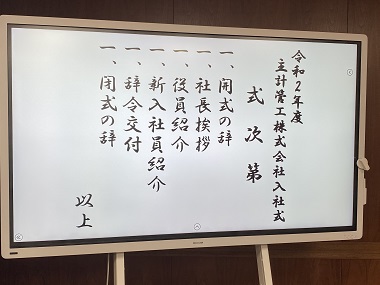 令和2年度
主計管工株式会社入社式
式次第
一、開式の辞
一、社長挨拶
一、役員紹介
一、新入社員紹介
一、辞令交付
一、閉式の辞
以上